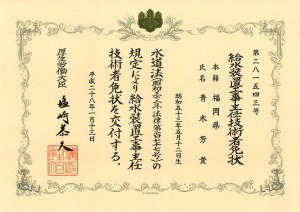 第二八一五四三号
給水装置工事主任技術者免状
本籍 福岡県
氏名 青木芳貴
昭和五十三年五月十二日生
水道法(昭和三十二年法律第百七十七号)の
規定により給水装置工事主任
技術者免状を交付する。
平成二十八年一月十三日
厚生労働大臣 塩崎恭久